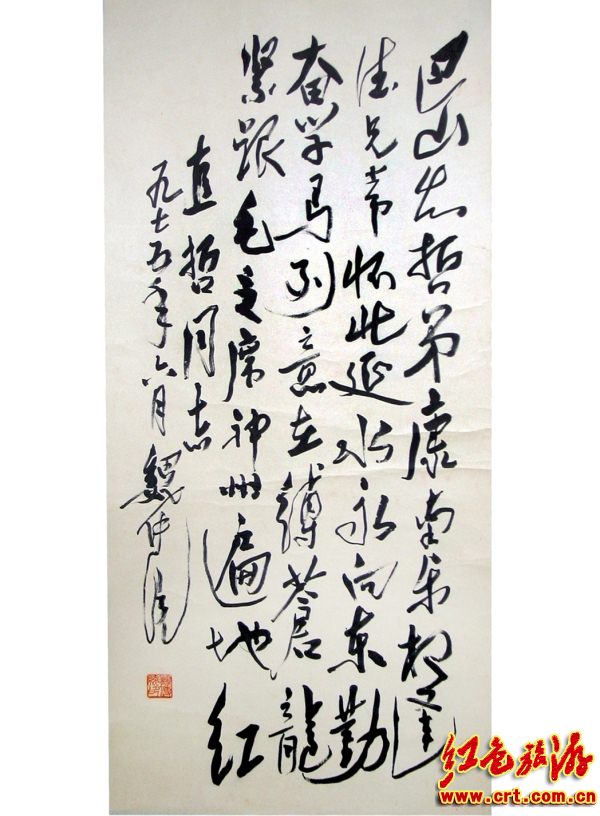 巴山哲弟康南乐相逢
兄常怀延水永向东勤
奋学马列意在缚苍龙
紧跟毛主席神州遍地红
直哲同志
一九七五年六月魏传统
红色旅游
www.crt.com.cn